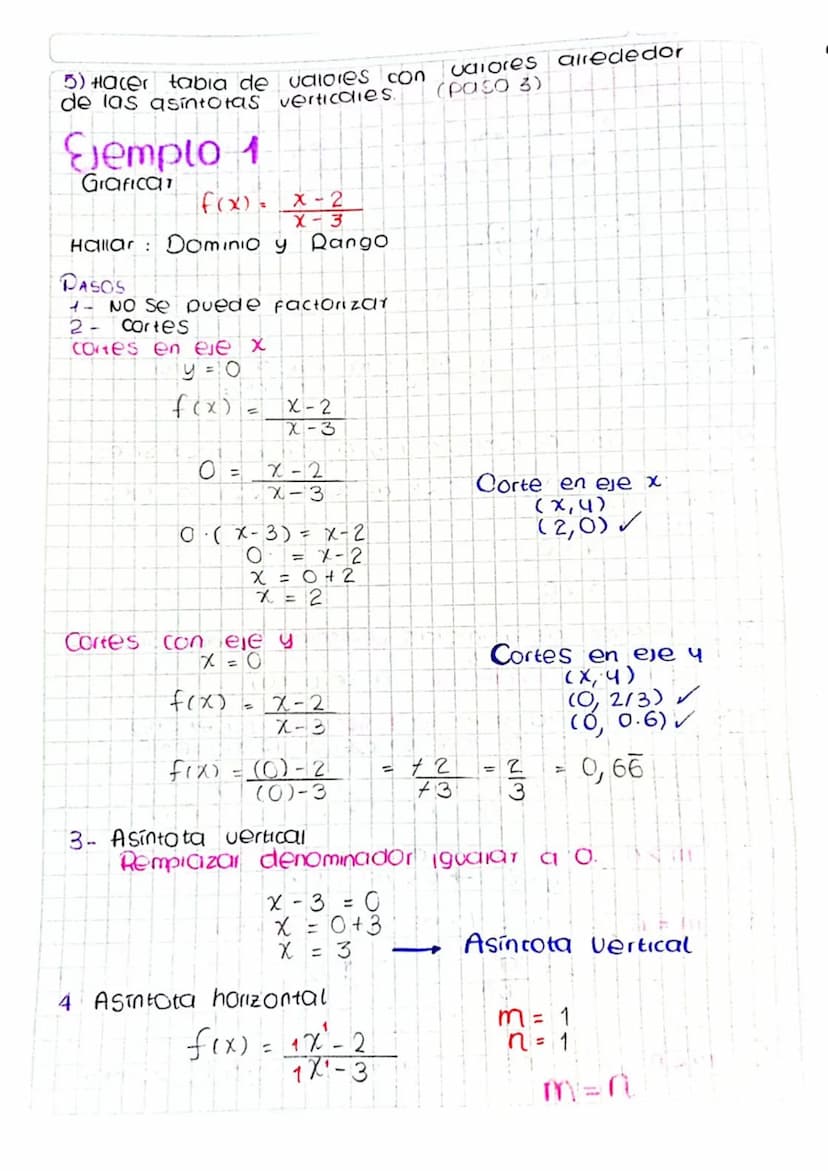 5) Hacer tabla de valores con valores alrededor
de las asíntotas verticales. (paso 3)
Ejemplo 1
Graficar
f(x) = x - 2 / x - 3
Hallar : Dominio y Rango
PASOS
1- NO se puede factorizar
2 - cortes
cortes en eje x
y = 0
f(x) = x - 2 / x - 3
0 = x - 2 / x - 3
0 · (x - 3) = x - 2
0 = x - 2
x = 0 + 2
x = 2
Corte en eje x
(x, y)
(2, 0) ✓
Cortes con eje y
x = 0
f(x) = x - 2 / x - 3
f(x) = (0) - 2 / (0) - 3 = +2 / +3 = 2 / 3 = 0,66̅
Cortes en eje y
(x, y)
(0, 2/3) ✓
(0, 0.6) ✓
3- Asíntota vertical
Remplazar denominador igualar a 0.
x - 3 = 0
x = 0 + 3
x = 3 → Asíntota vertical
4 Asíntota horizontal
f(x) = 1x¹ - 2 / 1x¹ - 3
m = 1
n = 1
m = n